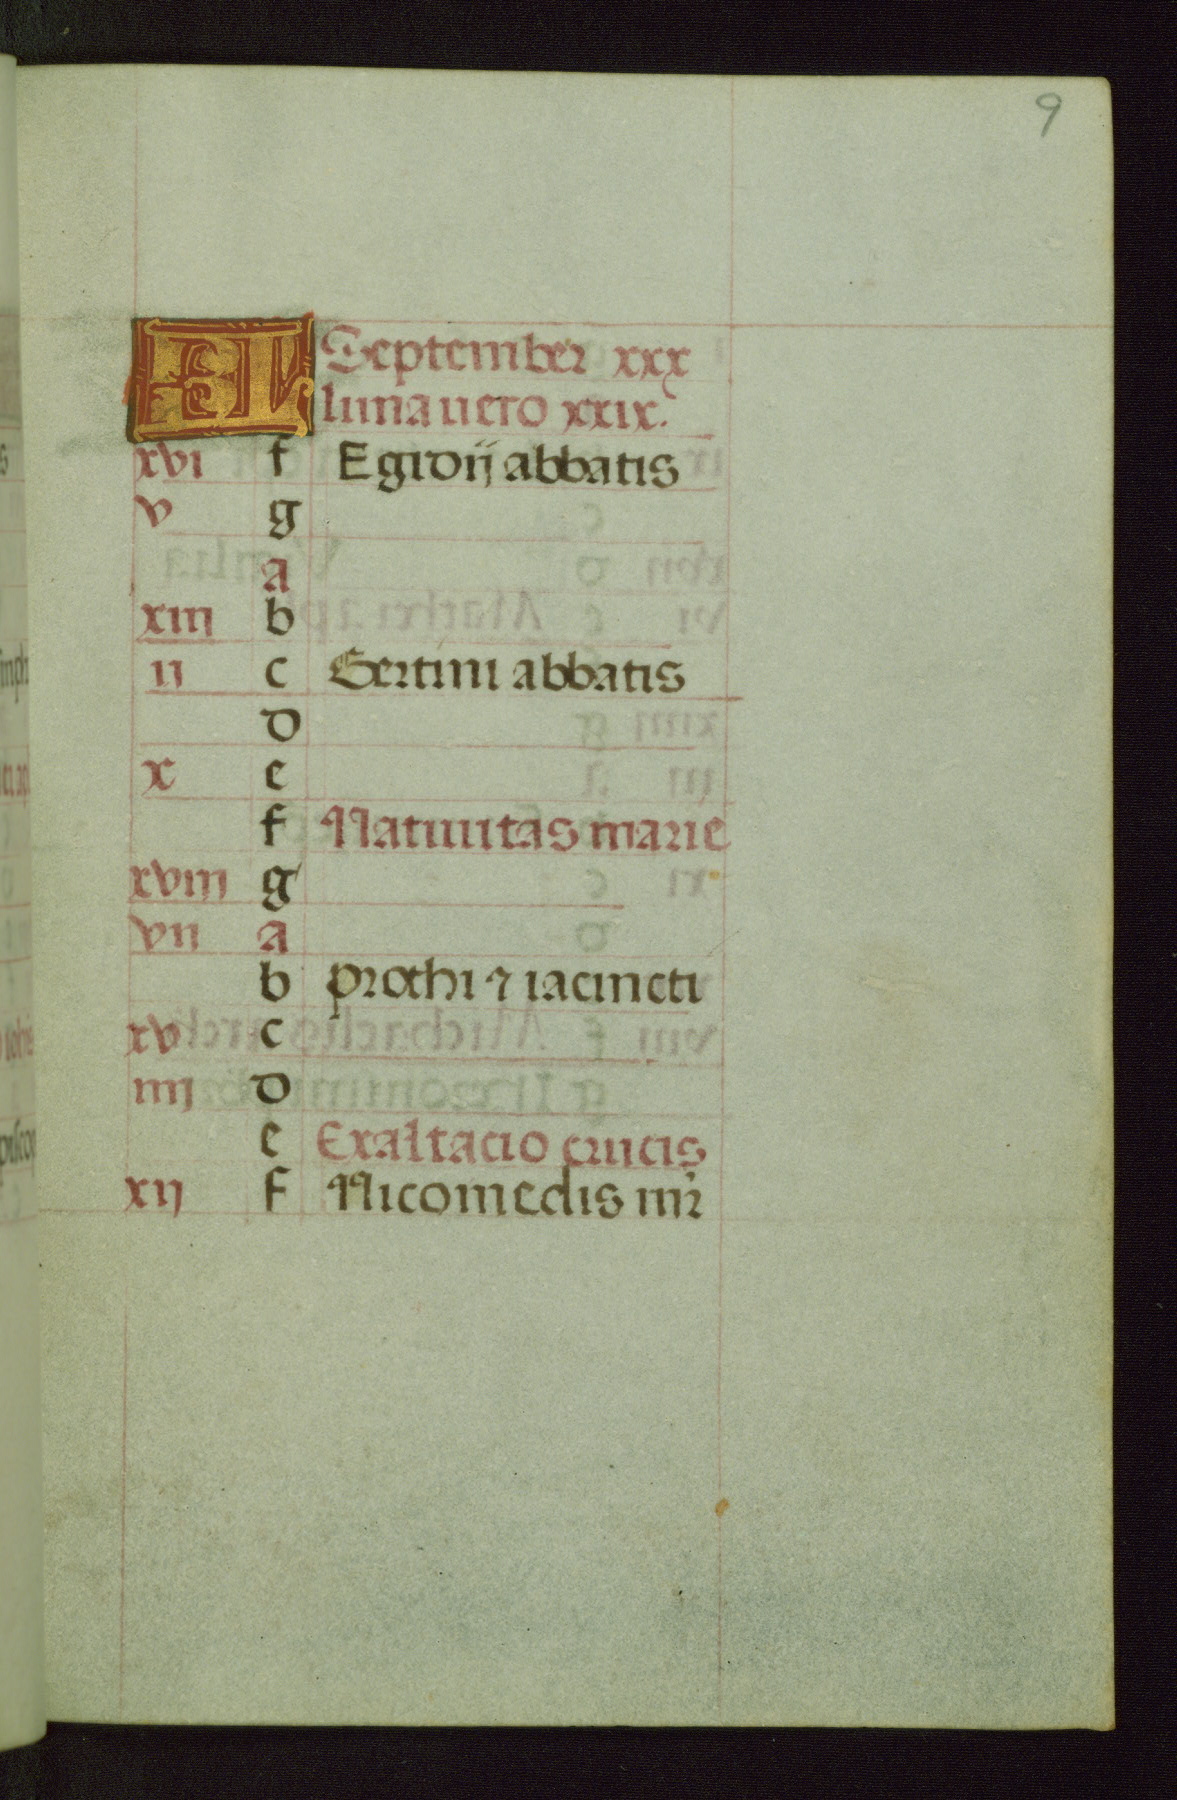 9
KL September xxx
luna uero xxix.
xvi f Egidij abbatis
v g
a
xiii b
ii c Bertini abbatis
d
x e
f Natiuitas marie
xviii g
vii a
b prothi ⁊ iacincti
xv c
iiij d
e Exaltacio crucis
xij f Nicomedis mr̄